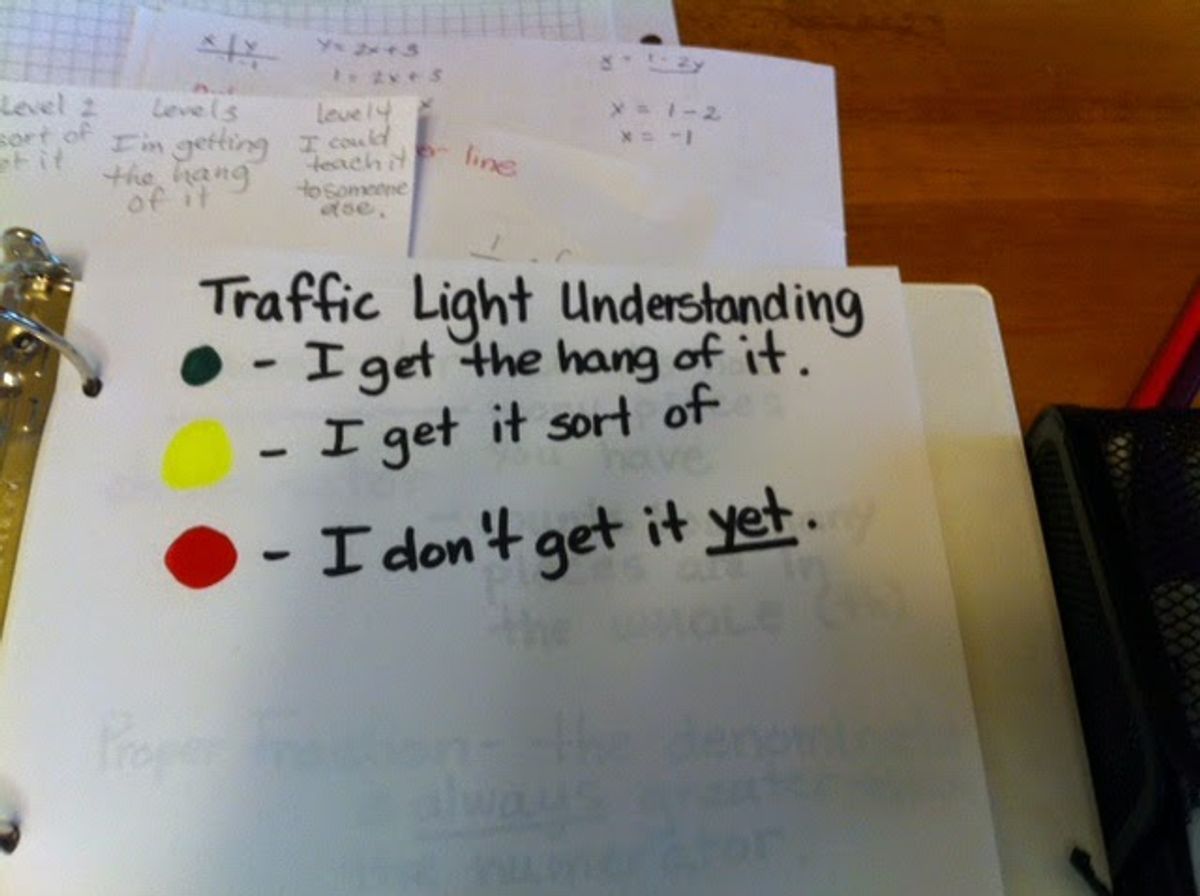 x | y
-1
y = 2x + 3
1 = 2x + 3
x = 1 - 2y
x = 1 - 2
x = -1
line
Level 2
sort of
it
Level 3
I'm getting
the hang
of it
Level 4
I could
teach it
to someone
else.
Traffic Light Understanding
- I get the hang of it.
- I get it sort of
- I don't get it yet.
you have
pieces are in
the whole
Proper Fraction - the
always greater
numerator.